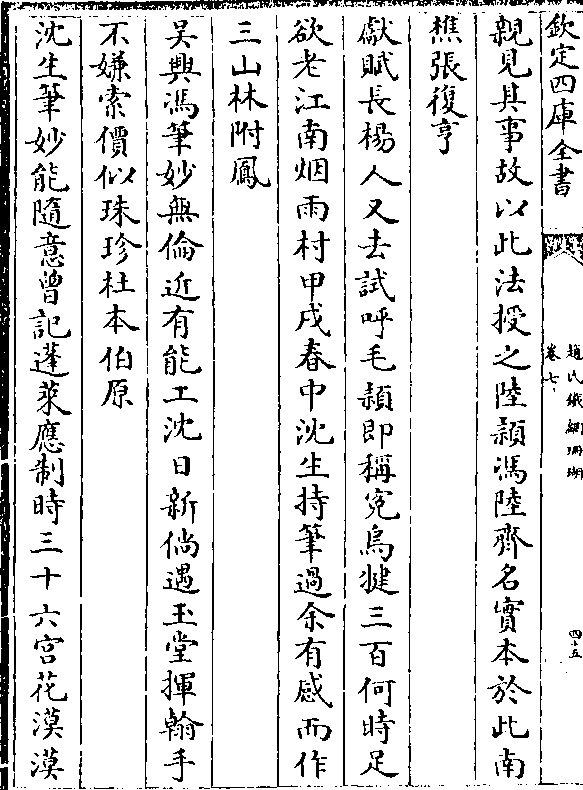 欽定四庫全書
趙氏鐵網珊瑚
卷七
四十五
親見其事故以此法授之陸頴馮陸齊名實本於此南
樵張復亨
獻賦長楊人又去試呼毛頴即稱寃烏犍三百何時足
欲老江南烟雨村甲戌春中沈生持筆過余有感而作
三山林附鳳
吴興馮筆妙無倫近有能工沈日新倘遇玉堂揮翰手
不嫌索價似珠珍杜本伯原
沈生筆妙能隨意曽記蓬萊應制時三十六宫花漠漠